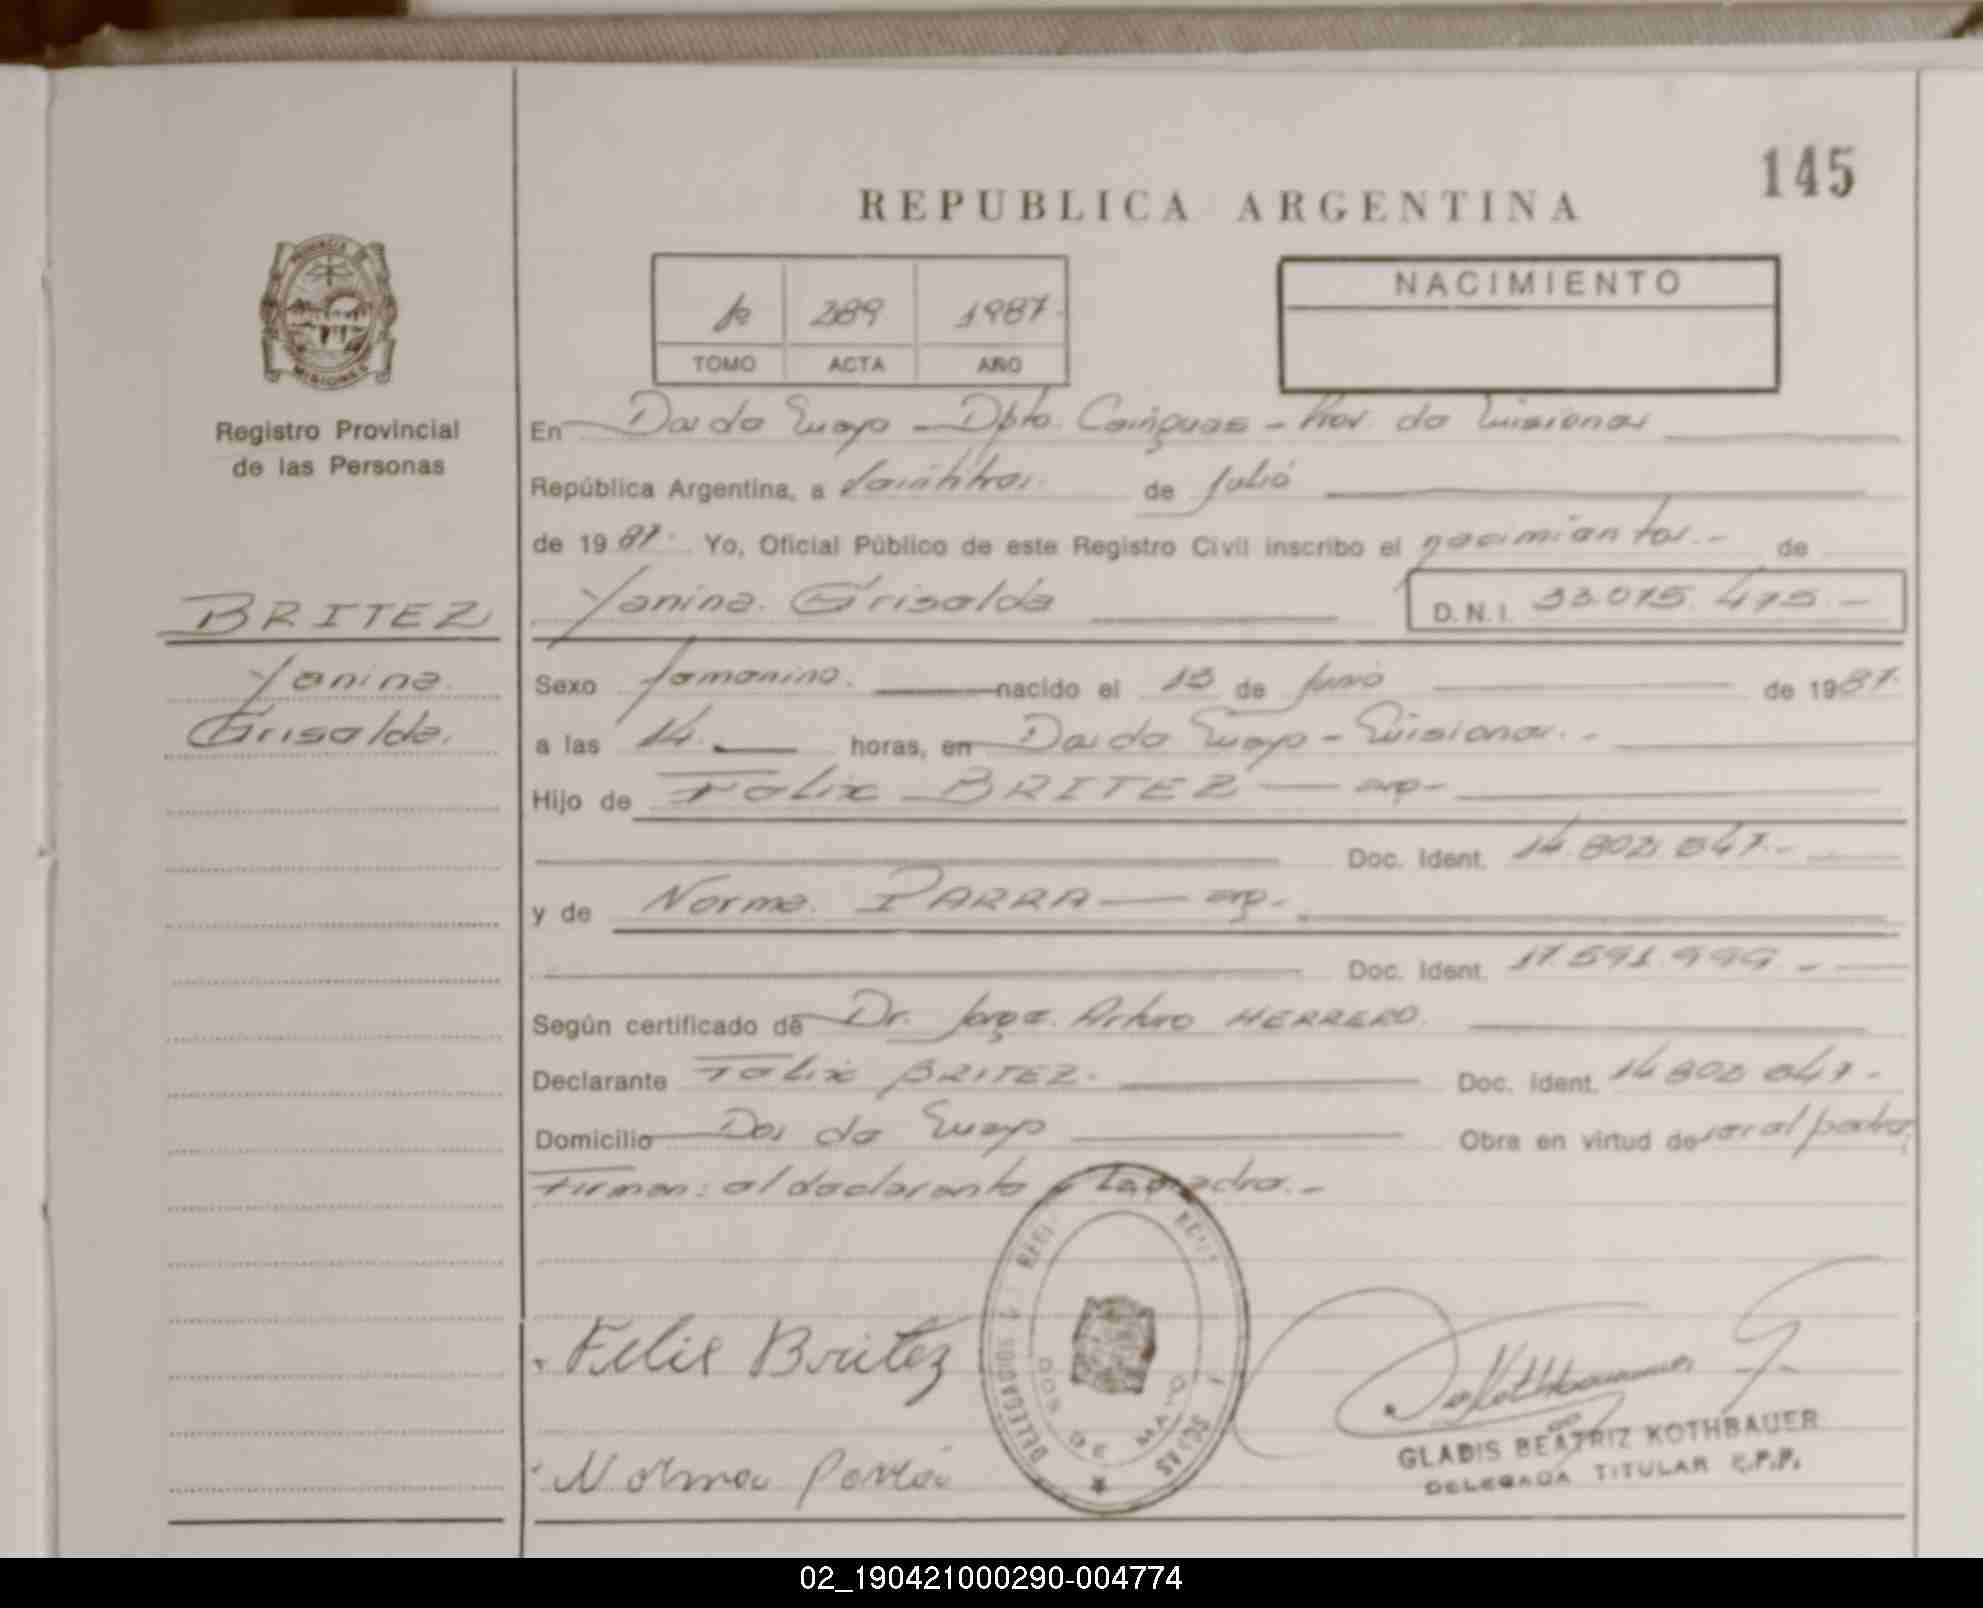 145
REPUBLICA ARGENTINA
PROVINCIA DE
MISIONES
Registro Provincial
de las Personas
NACIMIENTO
289 1987.
TOMO ACTA AÑO
En Dos de Mayo - Dpto. Cainguas - Prov. de Misiones
República Argentina, a veintitres. de Julio
de 1987. Yo, Oficial Público de este Registro Civil inscribo el nacimiento.- de
Yanina Griselda D.N.I. 33.075.475.-
BRITEZ
Yanina
Griselda.
Sexo femenino. nacido el 13 de Junio de 1987.
a las 14. horas, en Dos de Mayo - Misiones.-
Hijo de Felix BRITEZ — arg-
Doc. Ident. 14.802.847.-
y de Norma PARRA — arg.-
Doc. Ident. 17.591.999.-
Según certificado de Dr. Jorge Arturo HERRERO.
Declarante Felix BRITEZ. Doc. Ident. 14.802.847.-
Domicilio Dos de Mayo Obra en virtud de ser el padre,
Firman: el declarante y la madre.-
Felix Britez
DELEGACION
DOS DE MAYO
Norma Parra
GLADIS BEATRIZ KOTHBAUER
DELEGADA TITULAR R.P.P.
02_190421000290-004774